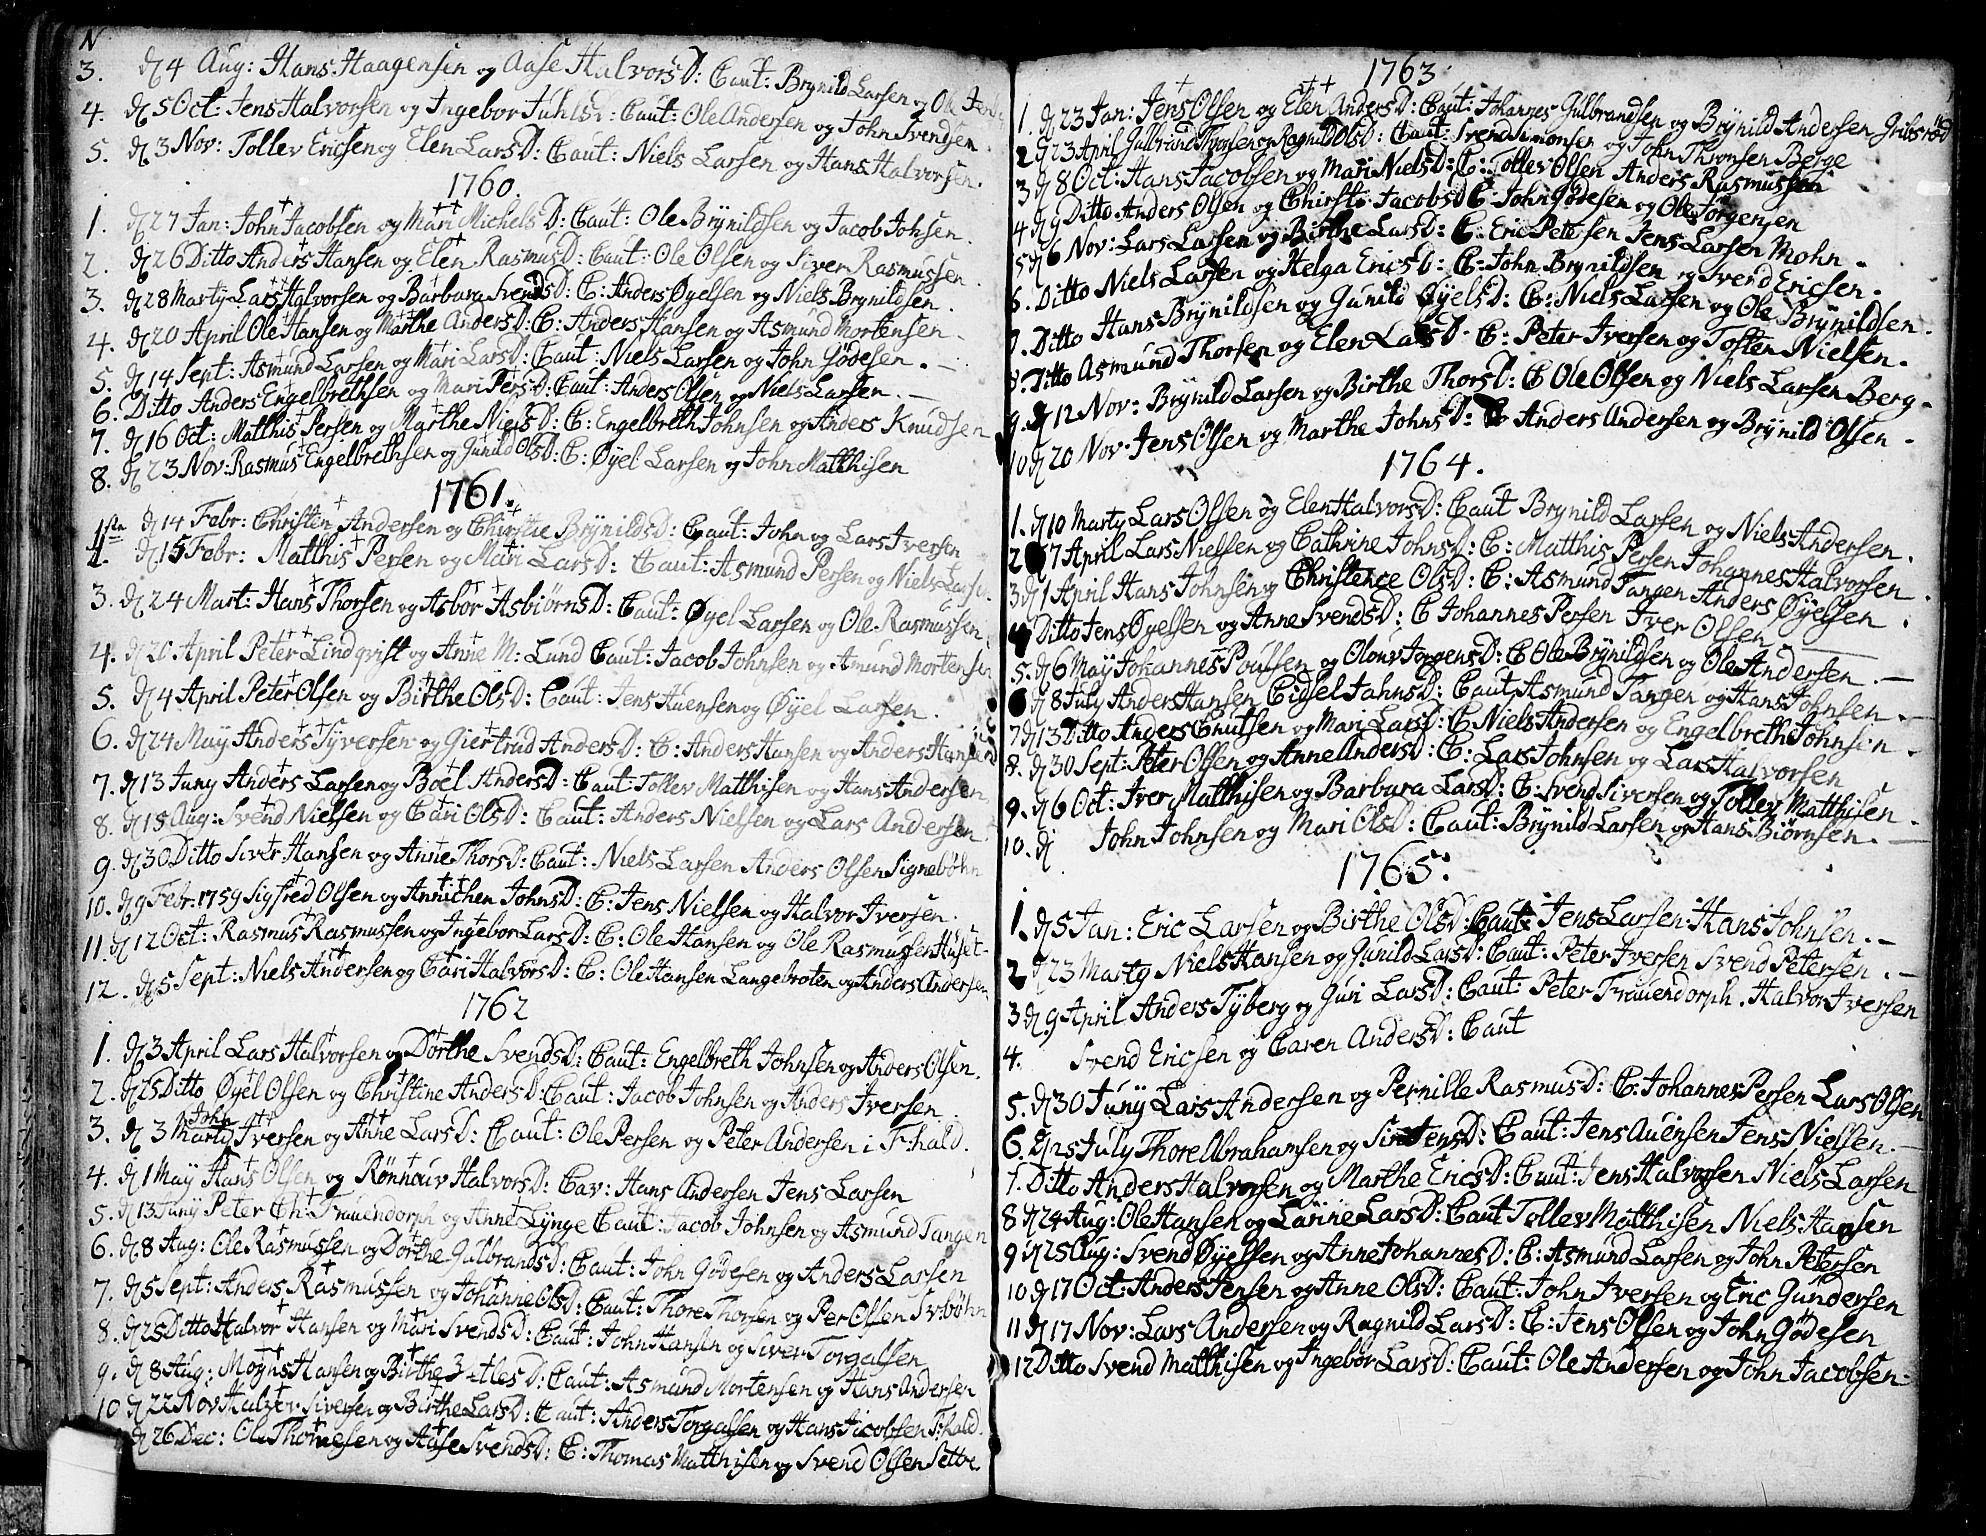 N
3. d 4 Aug: Hans Haagensen og Aase HalvorsD: Caut: Brynild Larsen og Ole
4. d 5 Oct: Jens Halvorsen og Ingebor JuhlsD: Caut: Ole Andersen og John Svendsen.
5. d 3 Nov: Tollev Ericsen og Elen LarsD: Caut: Niels Larsen og Hans Halvorsen.
1760.
1. d 27 Jan: John Jacobsen og Mari MichelsD: Caut: Ole Brynildsen og Jacob Johsen.
2. d 26 Ditto Anders Hansen og Elen RasmusD: Caut: Ole Olsen og Siver Rasmussen.
3. d 28 Marty Lars Halvorsen og Barbara SvendsD: C: Anders Øyelsen og Niels Brynildsen.
4. d 20 April Ole Hansen og Marthe AndersD: C: Anders Hansen og Asmund Mortensen.
5. d 14 Sept: Asmund Larsen og Mari LarsD: Caut: Niels Larsen og John Gødesen.
6. Ditto Anders Engelbrethsen og Mari PersD: Caut: Anders Olsen og Niels Larsen.
7. d 16 Oct: Matthis Persen og Marthe NielsD: C: Engelbreth Johnsen og Anders Knudsen
8. d 23 Nov: Rasmus Engelbrethsen og Gunild OlsD: C: Øyel Larsen og John Matthisen
1761.
1ste d 14 Febr: Christen Andersen og Chirstie BrynildsD: Caut: John og Lars Iversen
2. d 15 Febr: Matthis Persen og Mari LarsD: Caut: Asmund Persen og Niels Larsen.
3. d 24 Mart: Hans Thorsen og Asbor AsbiørnsD: Caut: Øyel Larsen og Ole Rasmussen
4. d 20 April Peter Lindqvist og Anne M: Lund Caut: Jacob Johnsen og Amund Mortensen
5. d 4 April Peter Olsen og Birthe OlsD: Caut: Jens Auensen og Øyel Larsen.
6. d 24 May Anders Syversen og Giertrud AndersD: C: Anders Hansen og Anders Hansen
7. d 13 Juny Anders Larsen og Boel AndersD: Caut: Tollev Matthisen og Hans Andersen
8. d 15 Aug: Svend Nielsen og Cari OlsD: Caut: Anders Nielsen og Lars Andersen
9. d 30 Ditto Siver Hansen og Anne ThorsD: Caut: Niels Larsen Anders Olsen Signebøhn
10. d 9 Febr. 1759 Sigfred Olsen og Annichen JohnsD: C: Jens Nielsen og Halvor Iversen.
11. d 12 Oct: Rasmus Rasmussen og Ingebor LarsD: C: Ole Hansen og Ole Rasmussen Huset
12. d 5 Sept: Niels Andersen og Cari HalvorsD: C: Ole Hansen Langebroten og Anders Andersen
1762
1. d 3 April Lars Halvorsen og Dorthe SvendsD: Caut: Engelbreth Johnsen og Anders Olsen.
2. d 25 Ditto Øyel Olsen og Christine AndersD: Caut: Jacob Johnsen og Anders Iversen.
3. d 3 Marty John Iversen og Anne LarsD: Caut: Ole Persen og Peter Andersen i F:hald.
4. d 1 May Hans Olsen og Rønnauv HalvorsD: Cav: Hans Andersen Jens Larsen
5. d 13 Juny Peter Ch: Frauendorph og Anne Lynge Caut: Jacob Johnsen og Asmund Tangen
6. d 8 Aug: Ole Rasmussen og Dorthe GulbrandsD: Caut: John Gødesen og Anders Larsen
7. d 5 Sept: Anders Rasmussen og Johanne OlsD: Caut: Thore Thorsen og Per Olsen
8. d 25 Ditto Halvor Hansen og Mari SvendsD: Caut: John Hansen og Siver Torgalsen
9. d 8 Aug: Mogns Hansen og Birthe D: Caut: Asmund Mortensen og Hans Andersen
10 d 22 Nov Siversen og Birthe LarsD: Caut: Anders Torgalsen og Hans Jacobsen F:hald.
d 26 Dec: Ole Thomesen og Aase SvendsD: C: Thomas Matthisen og Svend Olsen
1763
1. d 23 Jan: Jens Olsen og Elen AndersD: Caut: Johannes Gulbrandsen og Brynild Andersen Gribsrød
2 d 23 April Gulbrand Thorsen og Ragnild OlsD: Caut: Svend Simonsen og John Thronsen Berge
3 d 8 Oct: Hans Jacobsen og Mari NielsD: C: Tollev Olsen Anders Rasmussen
4 d 9 Ditto Anders Olsen og Chirsti JacobsD C: John Gødesen og Ole Jørgensen
5 d 6 Nov: Lars Larsen og Birthe LarsD: C: Eric Petersen Jens Larsen Mohn.
6. Ditto Niels Larsen og Helga EricsD: C: John Brynildsen og Svend Ericsen.
7. Ditto Hans Brynildsen og Gunild ØyelsD: C: Niels Larsen og Ole Brynildsen.
8. Ditto Asmund Thorsen og Elen LarsD. C: Peter Iversen og Tosten Nielsen.
9. d 12 Nov: Brynild Larsen og Birthe ThorsD: C Ole Olsen og Niels Larsen Berg.
10 d 20 Nov. Jens Olsen og Marthe JohnsD: C Anders Andersen og Brynild Olsen.
1764.
1. d 10 Marty Lars Olsen og Elen HalvorsD: Caut Brynild Larsen og Niels Andersen.
2 d 7 April Lars Nielsen og Cathrine JohnsD: C: Matthis Persen Johannes Halvorsen
3 d 1 April Hans Johnsen og Christence OlsD: C: Asmund Tangen Anders Øyelsen.
4 Ditto Jens Øyelsen og Anne SvendsD: C Johannes Persen Iver Olsen
5. d 6 May Johannes Poulsen og Olouv JorgensD: C Ole Brynildsen og Ole Andersen.
d 8 July Anders Hansen Cidsel JahnsD: Caut Asmund Tangen og Hans Johnsen.
7 d 13 Ditto Anders Cnutsen og Mari LarsD: C Niels Andersen og Engelbreth Johnsen.
8. d 30 Sept: Peter Olsen og Anne AndersD: C: Lars Johnsen og Lars Halvorsen
9. d 6 Oct: Iver Matthisen og Barbara LarsD: C: Svend Siversen og Tollev Matthisen.
10. d John Johnsen og Mari OlsD: Caut: Brynild Larsen og Hans Biørnsen.
1765.
1. d 5 Jan: Eric Larsen og Birthe OlsD: Caut: Jens Larsen Hans Johnsen.
2 d 23 Marty Niels Hansen og Gunild LarsD: Caut: Peter Iversen Svend Petersen.
3 d 9 April Anders Tyberg og Guri LarsD: Caut: Peter Frauendorph. Halvor Iversen
4. Svend Ericsen og Caren AndersD: Caut
5. d 30 Juny Lars Andersen og Pernille RasmusD: C: Johannes Persen Lars Olsen
6. d 25 July Thore Abrahamsen og Siri JensD: Caut: Jens Auensen Jens Nielsen.
7. Ditto Anders Halvorsen og Marthe EricsD: Caut: Jens Halvorsen Niels Larsen
8 d 24 Aug: Ole Hansen og Larine LarsD: Caut Tollev Matthisen Niels Hansen
9 d 25 Aug: Svend Øyelsen og Anne JohannesD: C: Asmund Larsen og John Petersen
10 d 17 Oct: Anders Jensen og Anne OlsD: Caut: John Iversen og Eric Gundersen
11 d 17 Nov: Lars Andersen og Ragnild LarsD: C: Jens Olsen og John Gødesen
12 Ditto Svend Matthisen og Ingebor LarsD: Caut: Ole Andersen og John Jacobsen.